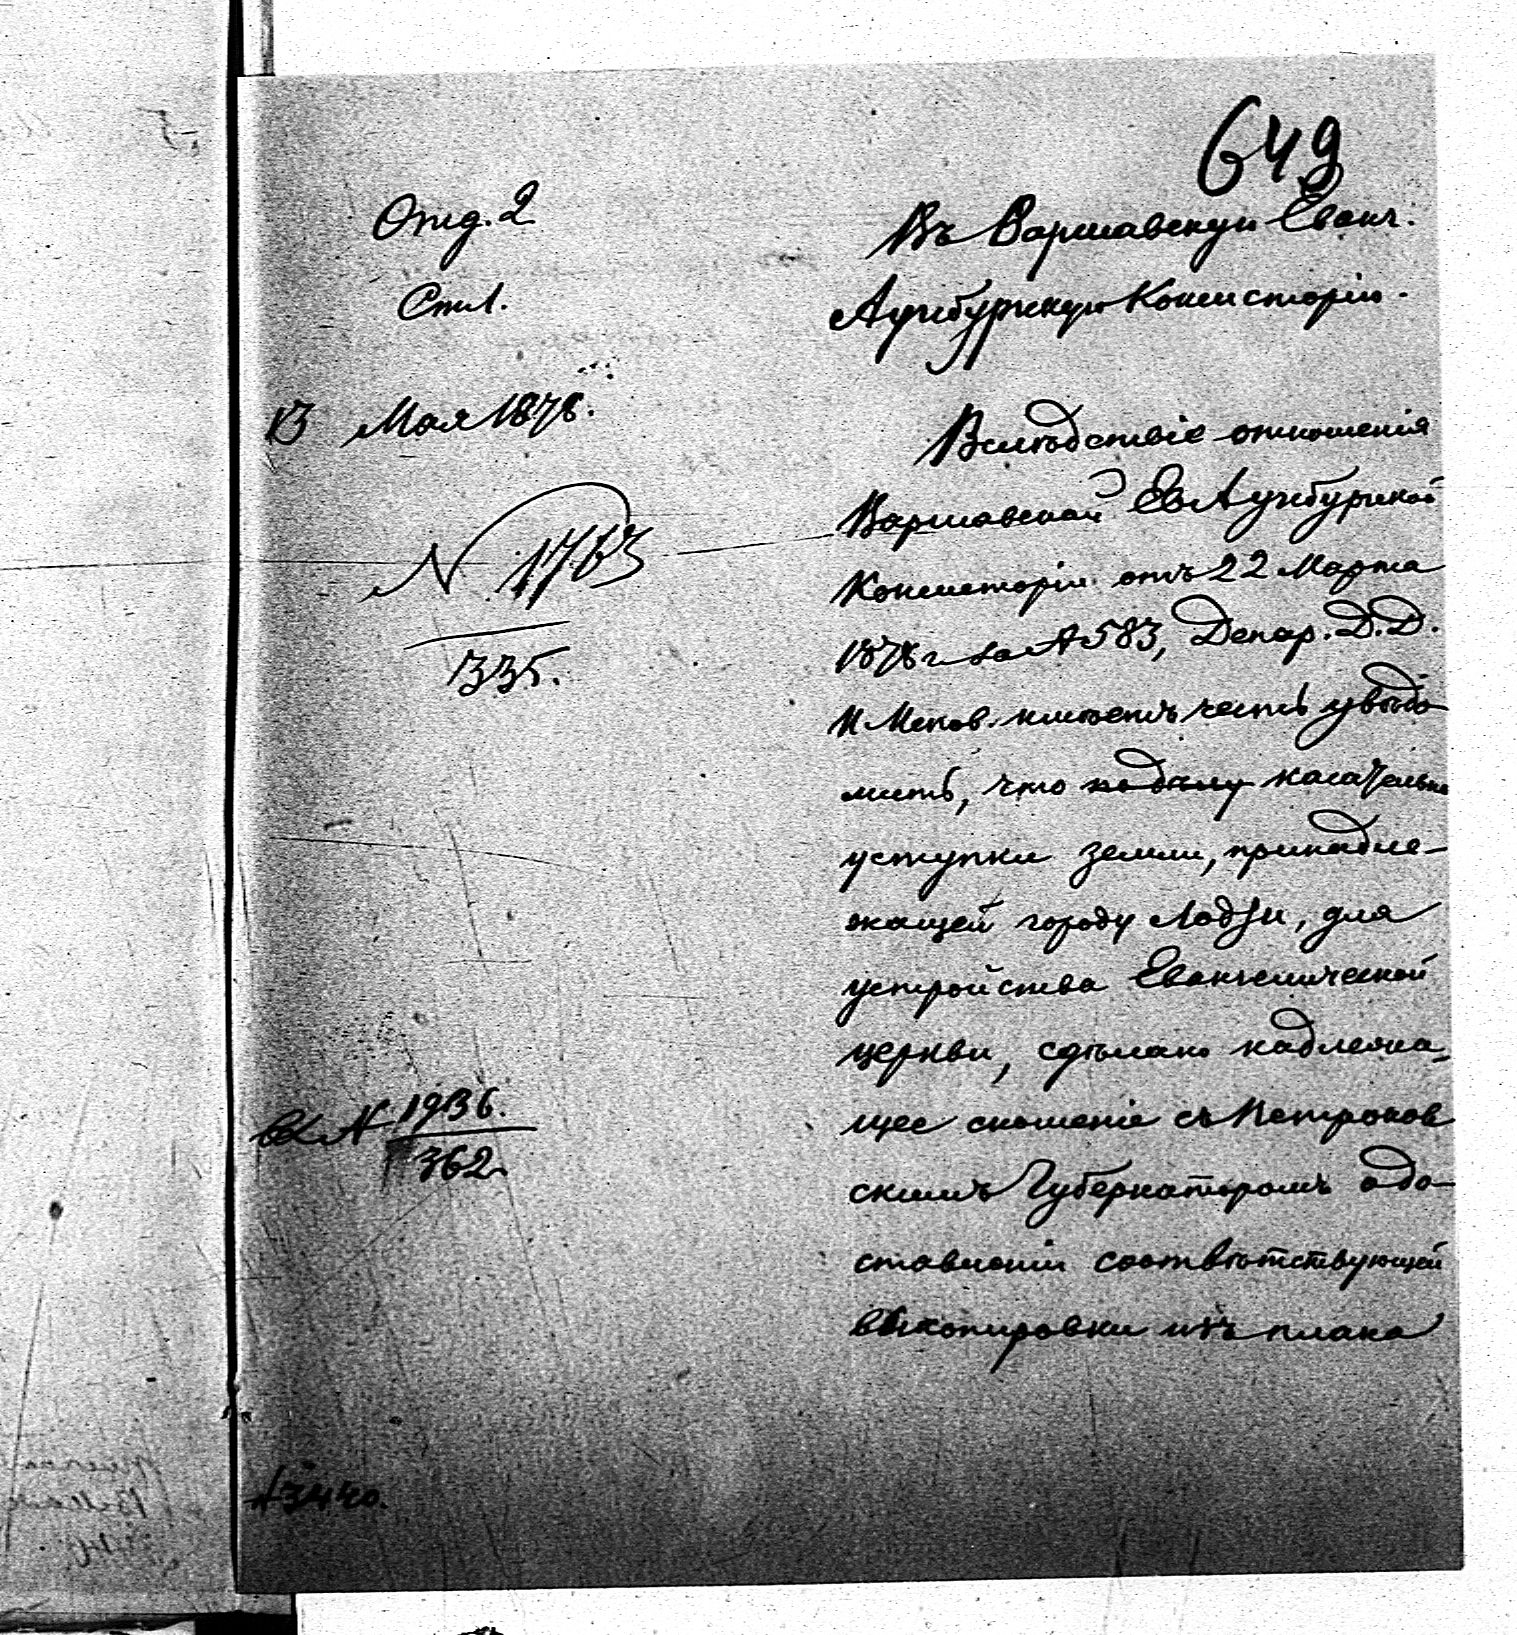 649
Отд. 2
Ст. 1.
13 Мая 1878.
N 1763
335.
вх N 1936.
362
N 3440.
Въ Варшавскую Еванг.
Аугсбургскую Консисторію.
Вслѣдствіе отношенія
Варшавской Ев Аугсбургской
Консисторіи отъ 22 Марта
1878 г за N 583, Депар. Д. Д.
И Испов. имѣетъ честь увѣдо-
мить, что по дѣлу касательно
уступки земли, принадле-
жащей городу Лодзи, для
устройства Евангелической
церкви, сдѣлано надлежа-
щее сношеніе съ Петроков
скимъ Губернаторомъ о до-
ставленіи соотвѣтствующей
выкопировки изъ плана